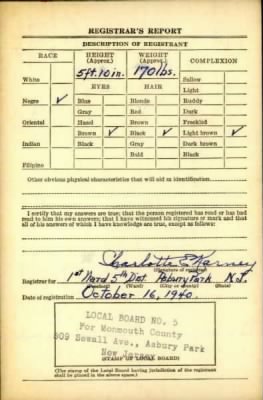 REGISTRAR'S REPORT
DESCRIPTION OF REGISTRANT
RACE HEIGHT (Approx.) WEIGHT (Approx.) COMPLEXION
5ft.10in. 170lbs.
White Sallow
EYES HAIR Light
Negro ✓ Blue Blonde Ruddy
Gray Red Dark
Oriental Hazel Brown Freckled
Brown ✓ Black ✓ Light brown ✓
Indian Black Gray Dark brown
Bald Black
Filipino
Other obvious physical characteristics that will aid in identification
I certify that my answers are true; that the person registered has read or has had
read to him his own answers; that I have witnessed his signature or mark and that
all of his answers of which I have knowledge are true, except as follows:
Charlotte E
(Signature of registrar)
Registrar for 1st Ward 5th Dist. Asbury Park N.J.
(Precinct) (Ward) (City or county) (State)
Date of registration October 16, 1940.
LOCAL BOARD NO. 5
For Monmouth County
809 Sewall Ave., Asbury Park
New Jersey
(STAMP OF LOCAL BOARD)
(The stamp of the Local Board having jurisdiction of the registrant
shall be placed in the above space.)